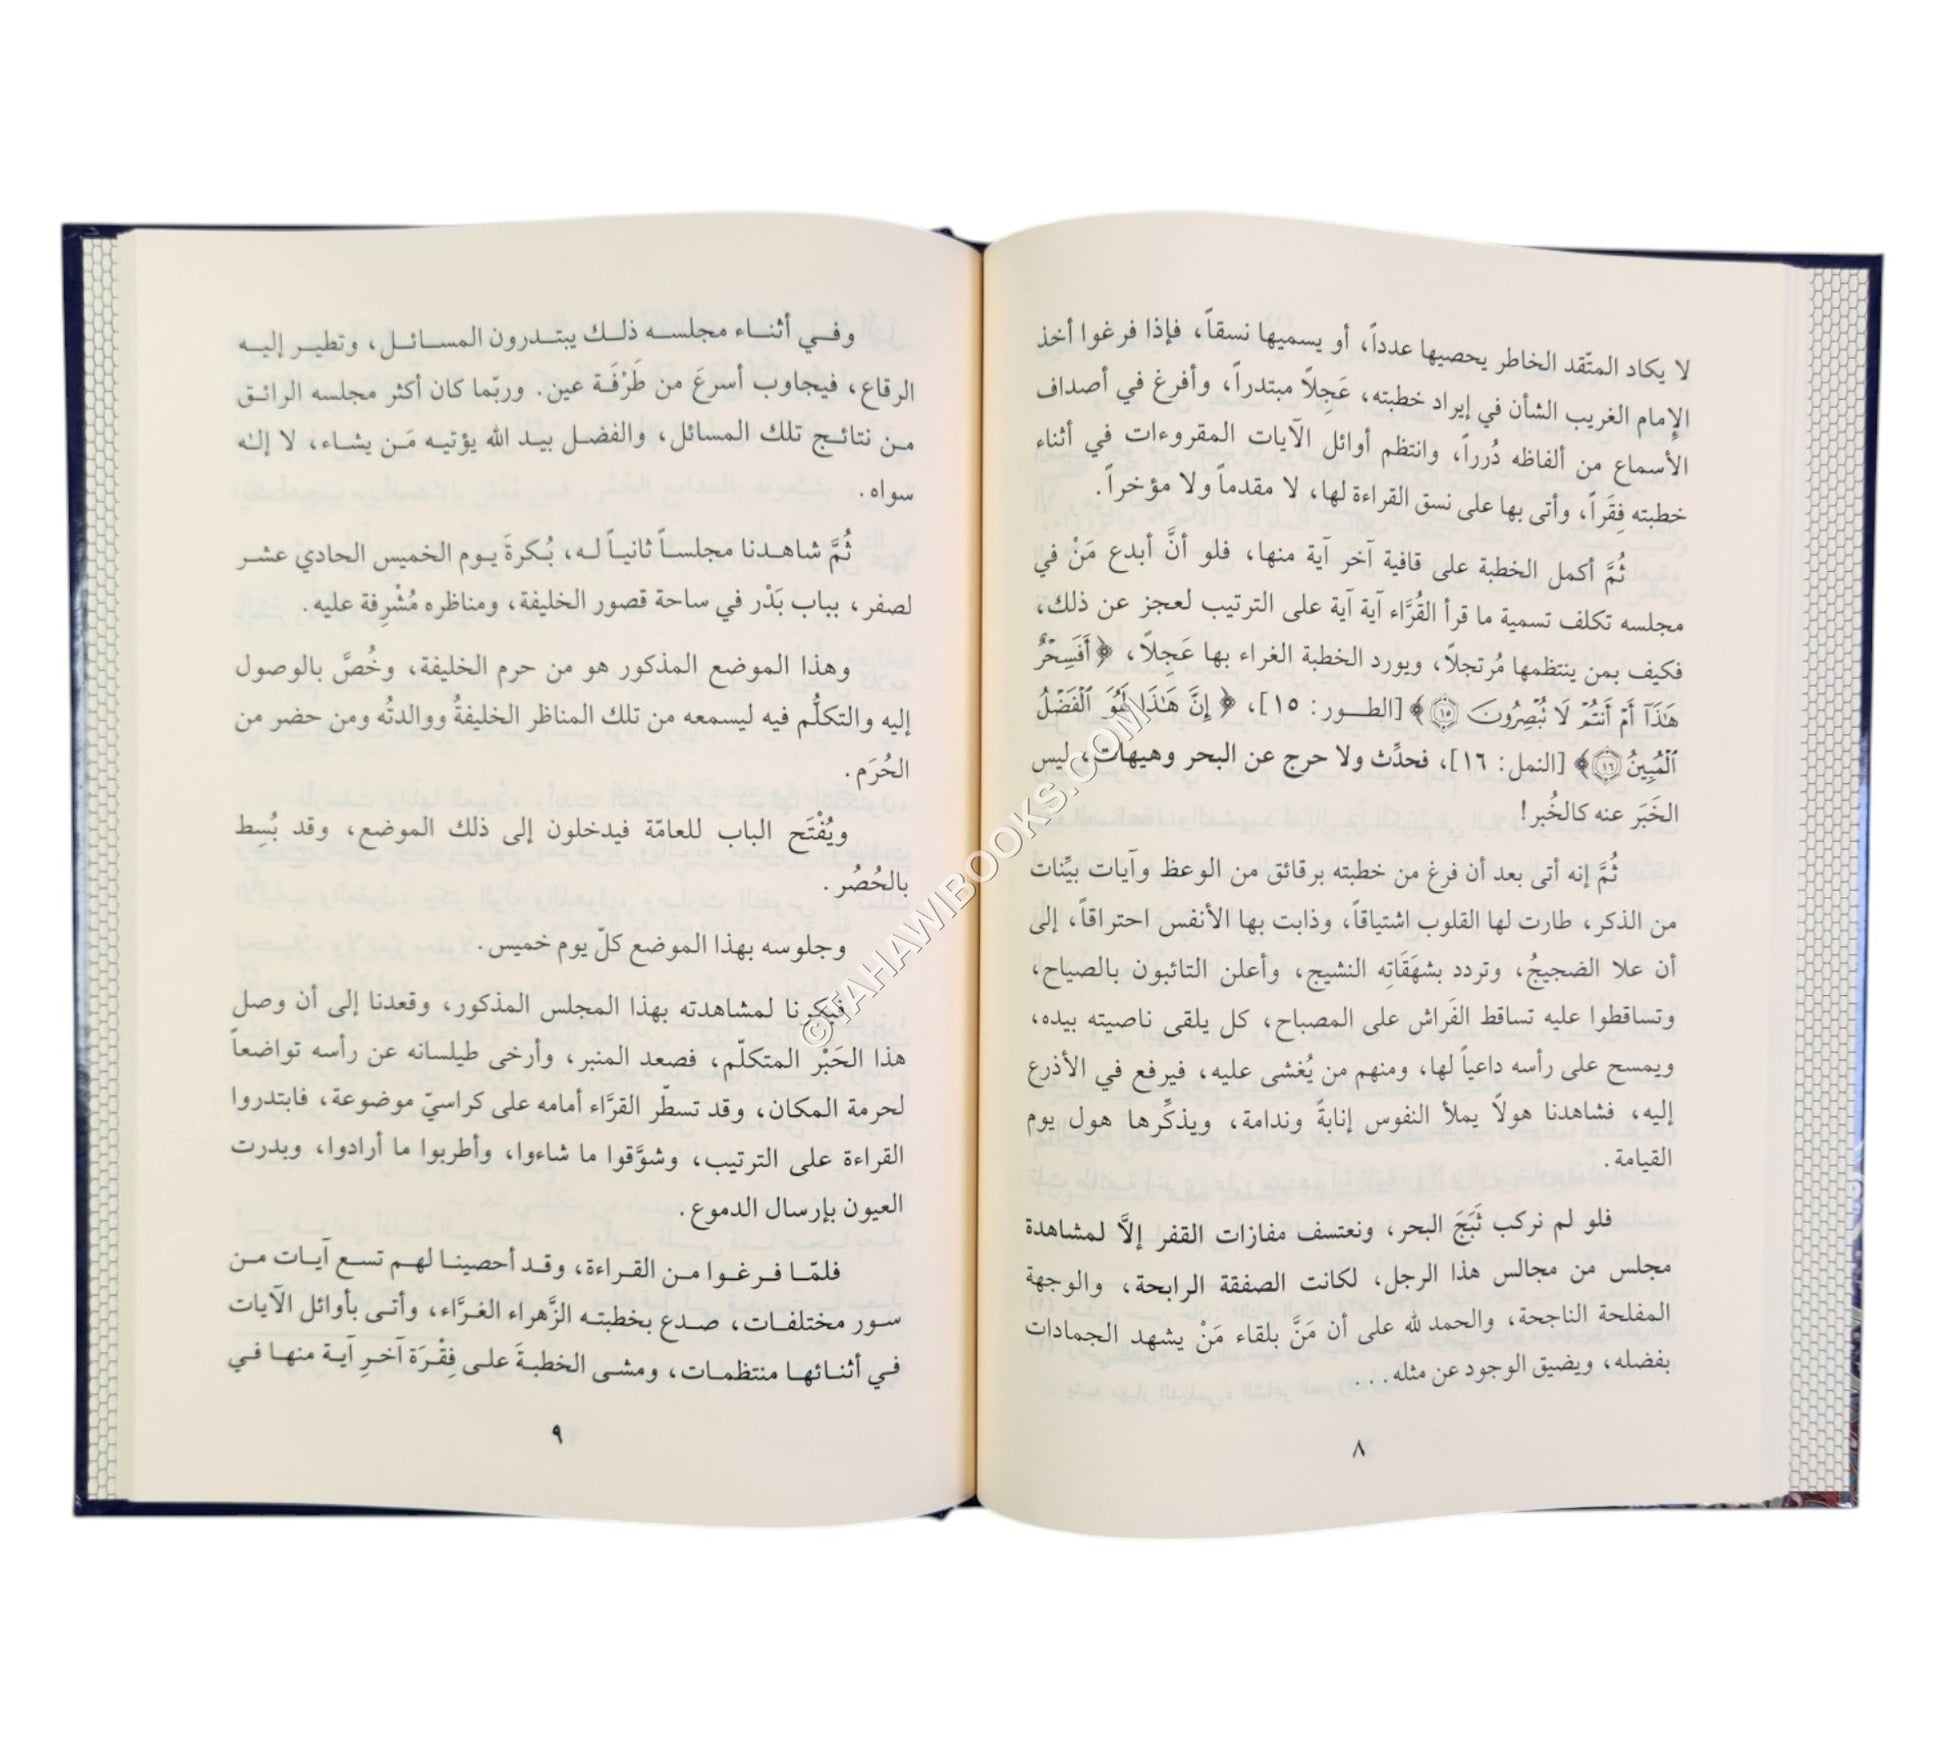 لا يكاد المتّقد الخاطر يحصيها عدداً، أو يسميها نسقاً، فإذا فرغوا أخذ
الإمام الغريب الشأن في إيراد خطبته، عَجِلاً مبتدراً، وأفرغ في أصداف
الأسماع من ألفاظه دُرراً، وانتظم أوائل الآيات المقروءات في أثناء
خطبته فِقَراً، وأتى بها على نسق القراءة لها، لا مقدماً ولا مؤخراً.
ثُمَّ أكمل الخطبة على قافية آخر آية منها، فلو أنَّ أبدع مَنْ في
مجلسه تكلف تسمية ما قرأ القُرَّاء آية آية على الترتيب لعجز عن ذلك،
فكيف بمن ينتظمها مُرتجلاً، ويورد الخطبة الغراء بها عَجِلاً، ﴿أَفَسِحْرٌ
هَٰذَآ أَمْ أَنتُمْ لَا تُبْصِرُونَ ۝١٥﴾ [الطــور: ١٥]، ﴿إِنَّ هَٰذَا لَهُوَ ٱلْفَضْلُ
ٱلْمُبِينُ ۝١٦﴾ [النمل: ١٦]، فحدِّث ولا حرج عن البحر وهيهات، ليس
الخَبَر عنه كالخُبر!
ثُمَّ إنه أتى بعد أن فرغ من خطبته برقائق من الوعظ وآيات بيِّنات
من الذكر، طارت لها القلوب اشتياقاً، وذابت بها الأنفس احتراقاً، إلى
أن علا الضجيجُ، وتردد بشهَقَاتِه النشيج، وأعلن التائبون بالصياح،
وتساقطوا عليه تساقط الفَراش على المصباح، كل يلقى ناصيته بيده،
ويمسح على رأسه داعياً لها، ومنهم من يُغشى عليه، فيرفع في الأذرع
إليه، فشاهدنا هولاً يملأ النفوس إنابةً وندامة، ويذكِّرها هول يوم
القيامة.
فلو لم نركب ثَبَجَ البحر، ونعتسف مفازات القفر إلاَّ لمشاهدة
مجلس من مجالس هذا الرجل، لكانت الصفقة الرابحة، والوجهة
المفلحة الناجحة، والحمد لله على أن مَنَّ بلقاء مَنْ يشهد الجمادات
بفضله، ويضيق الوجود عن مثله...
٨
وفي أثناء مجلسه ذلك يبتدرون المسائل، وتطير إليه
الرقاع، فيجاوب أسرعَ من طَرْفَة عين. وربّما كان أكثر مجلسه الرائق
من نتائج تلك المسائل، والفضل بيد الله يؤتيه مَن يشاء، لا إله
سواه.
ثُمَّ شاهدنا مجلساً ثانياً له، بُكرةَ يوم الخميس الحادي عشر
لصفر، بباب بَدْر في ساحة قصور الخليفة، ومناظره مُشْرِفة عليه.
وهذا الموضع المذكور هو من حرم الخليفة، وخُصَّ بالوصول
إليه والتكلُّم فيه ليسمعه من تلك المناظر الخليفةُ ووالدتُه ومن حضر من
الحُرَم.
ويُفْتَح الباب للعامّة فيدخلون إلى ذلك الموضع، وقد بُسِط
بالحُصُر.
وجلوسه بهذا الموضع كلّ يوم خميس.
فبكرنا لمشاهدته بهذا المجلس المذكور، وقعدنا إلى أن وصل
هذا الحَبْر المتكلّم، فصعد المنبر، وأرخى طيلسانه عن رأسه تواضعاً
لحرمة المكان، وقد تسطّر القرَّاء أمامه على كراسيّ موضوعة، فابتدروا
القراءة على الترتيب، وشوَّقوا ما شاءوا، وأطربوا ما أرادوا، وبدرت
العيون بإرسال الدموع.
فلمّا فرغوا من القراءة، وقد أحصينا لهم تسع آيات من
سور مختلفات، صدع بخطبته الزَّهراء الغرَّاء، وأتى بأوائل الآيات
في أثنائها منتظمات، ومشى الخطبةَ على فِقْرَة آخرِ آية منها في
٩
©TAHAWIBOOKS.COM